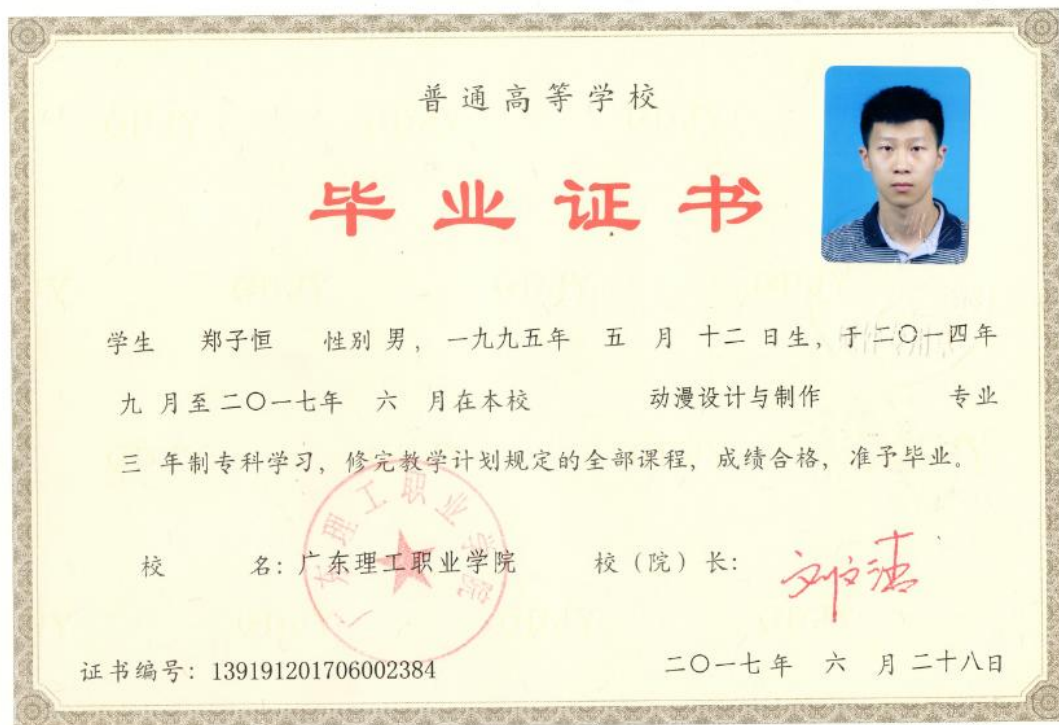 普通高等学校
毕业证书
学生 郑子恒 性别 男，一九九五年 五 月 十二 日生，于二〇一四年
九 月至二〇一七年 六 月在本校 动漫设计与制作 专业
三 年制专科学习，修完教学计划规定的全部课程，成绩合格，准予毕业。
广东理工职业学院
校 名：广东理工职业学院 校（院）长：
证书编号：139191201706002384 二〇一七年 六 月二十八日